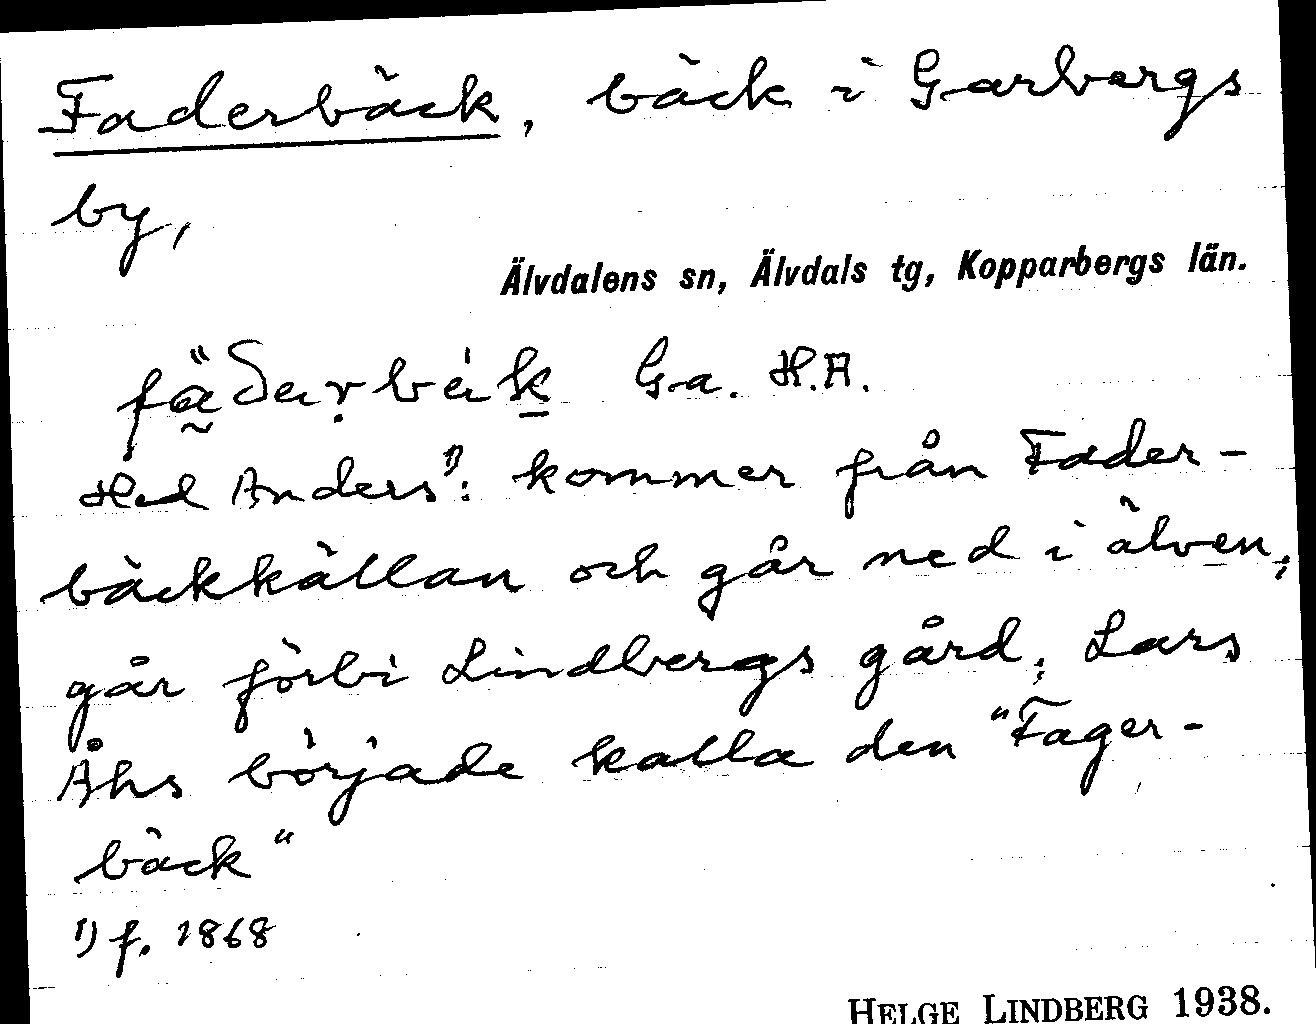 Faderbäck, bäck i Garbergs
by,
Älvdalens sn, Älvdals tg, Kopparbergs län.
Ga. H.A.
Hed Anders¹⁾: kommer från Fader-
bäckkällan och går ned i älven;
går förbi Lindbergs gård; Lars
Åhs började kalla den "Fager-
bäck"
1) f. 1868
HELGE LINDBERG 1938.